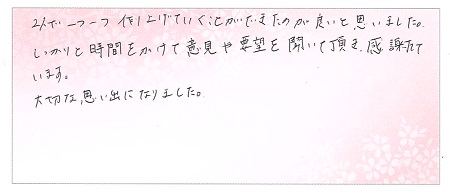 2人で一つ一つ作り上げていくことができたのが良いと思いました。
しっかりと時間をかけて意見や要望を聞いて頂き、感謝して
います。
大切な思い出になりました。